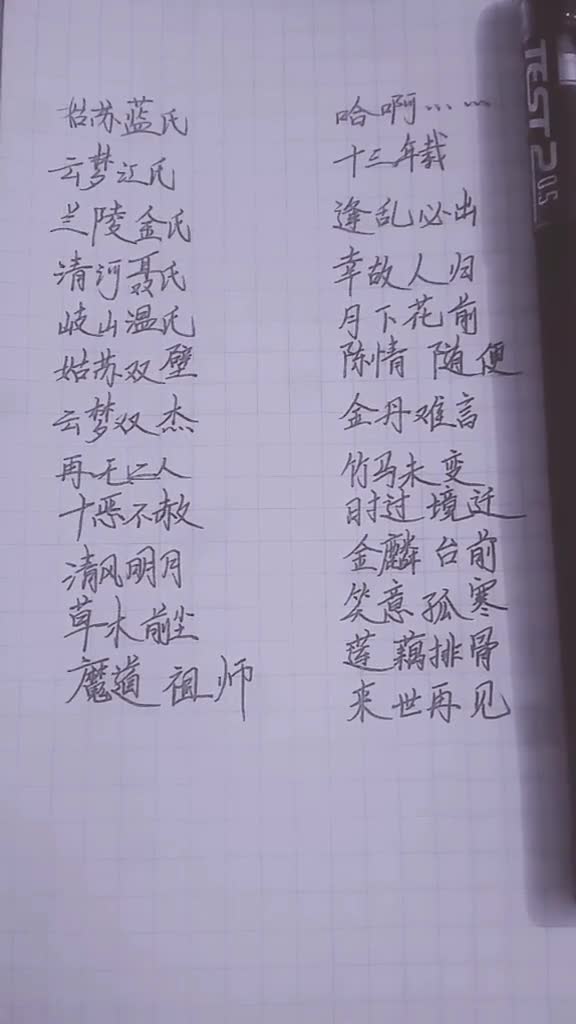 姑苏蓝氏
云梦江氏
兰陵金氏
清河聂氏
岐山温氏
姑苏双璧
云梦双杰
再无二人
十恶不赦
清风明月
草木前尘
魔道祖师
哈啊……
十三年载
逢乱必出
幸故人归
月下花前
陈情 随便
金丹难言
竹马未变
时过境迁
金麟台前
笑意孤寒
莲藕排骨
来世再见
TEST 2 0.5